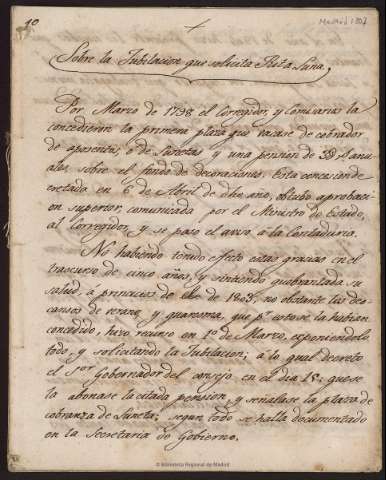 10
Madrid 1807
Sobre la Jubilacion que solicita Rita Luna.
Por Marzo de 1798 el Corregidor, y Comisarios la
concedieron la primera plaza que vacase de cobrador
de aposentos, ó de lunetas y una pension de 3 D. anu-
ales sobre el fondo de decoraciones. Esta concesion de-
cretada en 6 de Abril de dho año, obtubo aprobaci-
on superior, comunicada por el Ministro de Estado,
al Corregidor, y se pasó el aviso á la Contaduria.
No habiendo tenido efecto estas gracias en el
trascurso de cinco años, y sintiendo quebrantada su
salud, á principios de de 1803, no obstante los des-
cansos de verano, y quaresma, que pr. esto se la habian
concedido, hizo recurso en 1º de Marzo, exponiendolo
todo, y solicitando la Jubilacion; á lo qual decretó
el Sor Gobernador del consejo en el dia 15, que se
la abonase la citada pension, y señalase la plaza de
cobranza de luneta; segun todo se halla documentado
en la Secretaria de Gobierno.
© Biblioteca Regional de Madrid